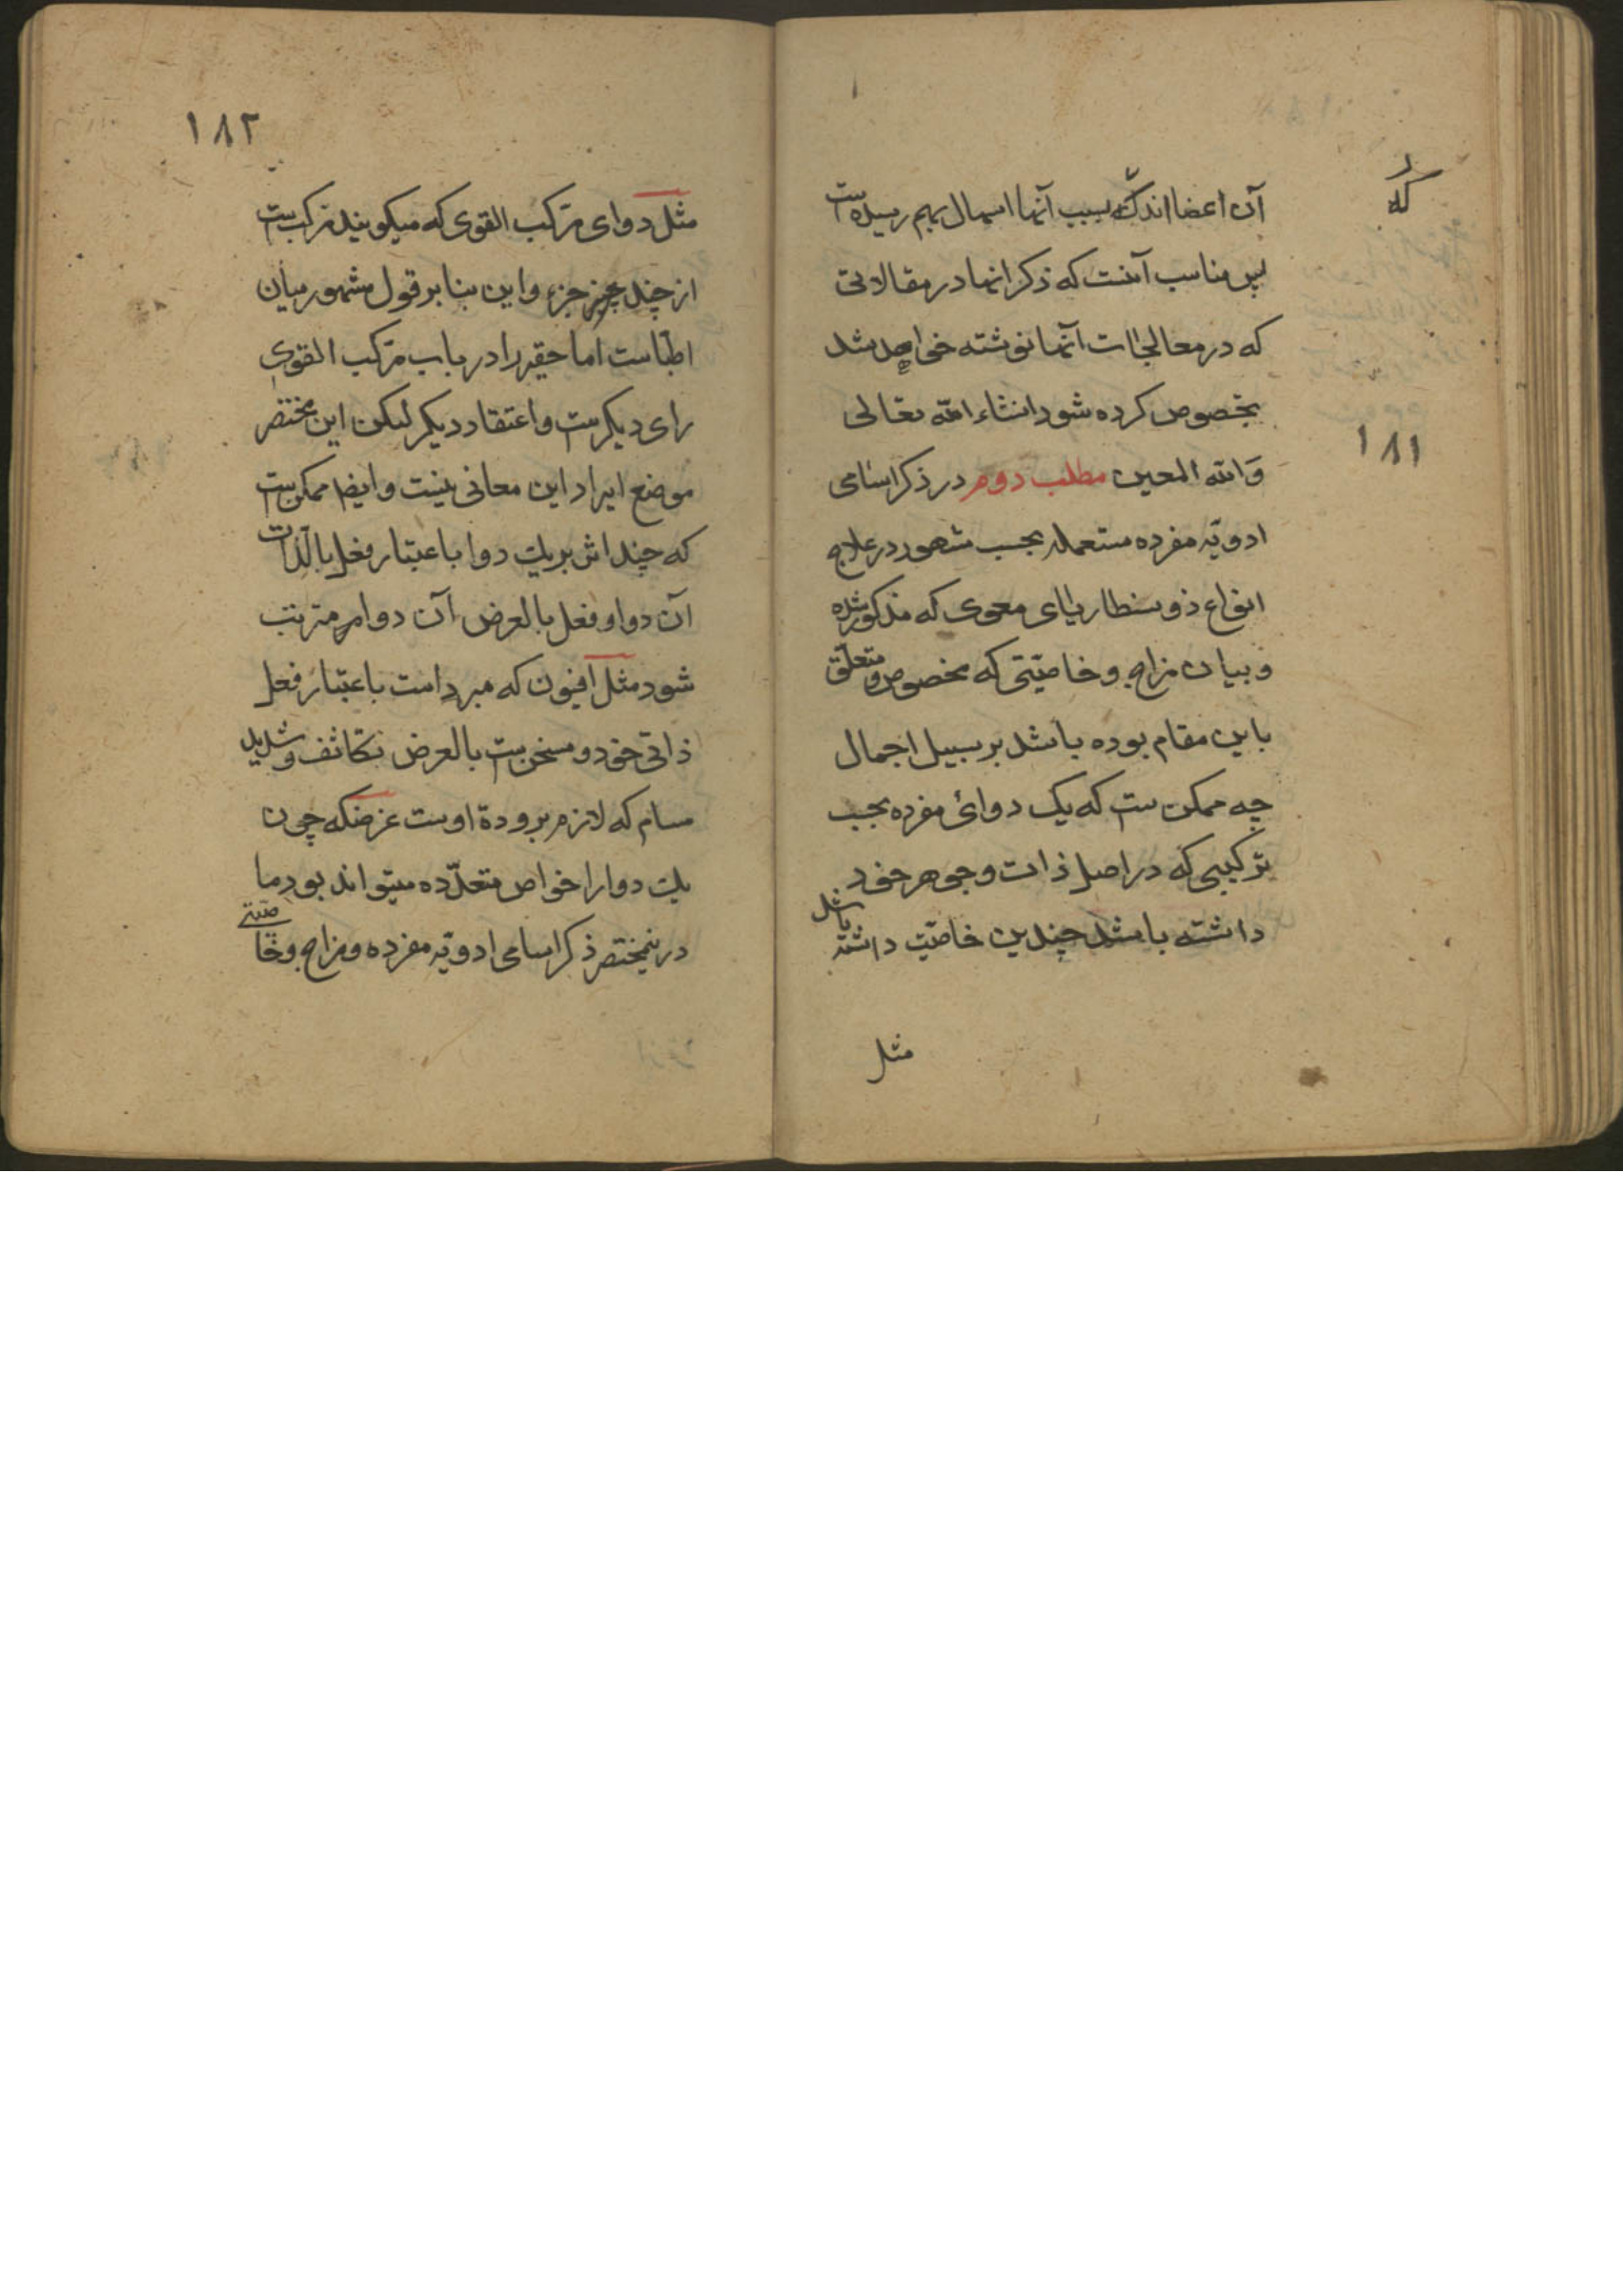 که
۱۸۱
آن اعضااند که بسبب آنها اسهال بهم رسیده است
پس مناسب آنست که ذکر انها در مقالاتی
که در معالجات آنها نوشته خواهد شد
بخصوص کرده شود انشاء الله تعالی
وَالله المعین مطلب دوم در ذکر اسامی
ادویّه مفرده مستعمله بحسب مشهور در علاج
انواع ذوسنطاریای معوی که مذکور شده
و بیان مزاج و خاصیّتی که مخصوص و متعلّق
باین مقام بوده باشد بر سبیل اجمال
چه ممکن ست که یک دوائ مفرده بحسب
ترکیبی که در اصل ذات و جوهر خود
داشته باشد چندین خاصیّت داشته باشد
مثل
۱۸۲
مثل دوای مرّکب القوی که میکویند مرکب ست
از چند چیز جزء و این بنا بر قول مشهور میان
اطبّاست اما حقیر را در باب مرّکب القوی
رای دیکرست و اعتقاد دیکر لیکن این مختصر
موضع ایراد این معانی نیست و ایضا ممکن ست
که چند اثر بر یک دوا باعتبار فعل بالذّات
آن دوا و فعل بالعرض آن دوا مترتب
شود مثل افیون که مبرد است باعتبار فعل
ذاتی خود و مسخن ست بالعرض بتکاثف و شدید
مسام که لازم برودة اوست غرضکه چون
یک دوا را خواص متعدّده میتواند بود ما
درینمختصر ذکر اسامی ادویّه مفرده و مزاج و خاصیّتی